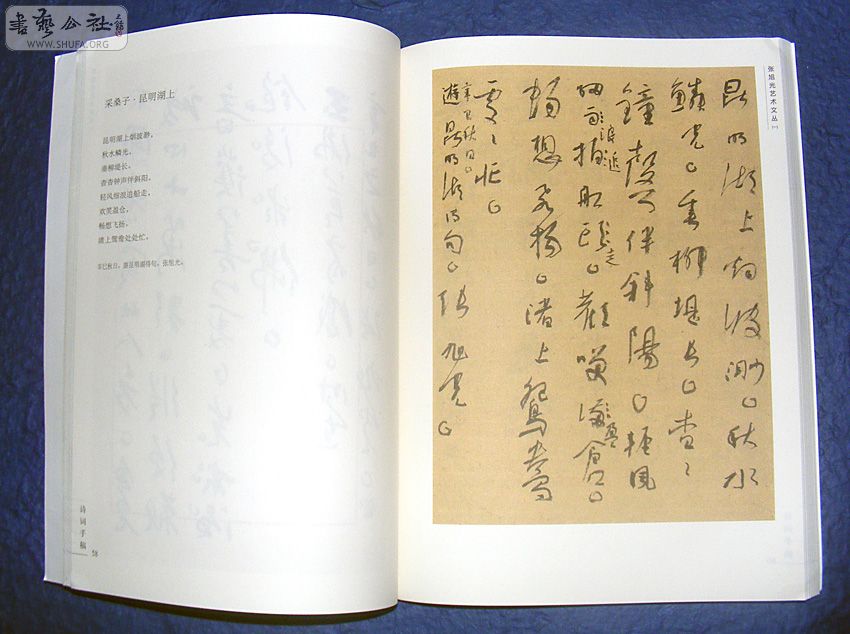 書藝公社
WWW.SHUFA.ORG
采桑子·昆明湖上
昆明湖上烟波渺。
秋水鳞光。
垂柳堤长。
杳杳钟声伴斜阳。
轻风细浪追船走,
欢笑盈仓。
畅想飞扬。
渚上鸳鸯处处忙。
辛巳秋日,游昆明湖得句。张旭光。
诗词手稿
58
张旭光艺术文丛(一)
昆明湖上烟波渺。秋水
鳞光。垂柳堤长。杳々
鐘聲伴斜陽。輕風
細浪拍船头走。歡笑滿盈倉。
暢想飞揚。渚上鴛鴦
處々忙。
辛巳秋日。
遊昆明湖得句。张旭光。